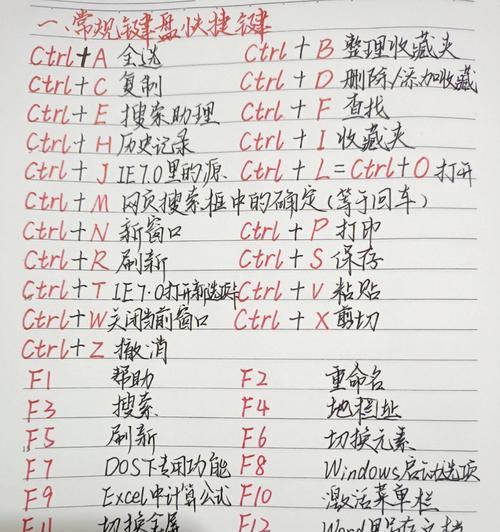 一、常规键盘快捷键
Ctrl+A 全选 Ctrl+B 整理收藏夹
Ctrl+C 复制 Ctrl+D 删除/添加收藏
Ctrl+E 搜索助理 Ctrl+F 查找
Ctrl+H 历史记录 Ctrl+I 收藏夹
Ctrl+J IE7.0里的源 Ctrl+L=Ctrl+O 打开
Ctrl+M 网页搜索框中的确定(等于回车)
Ctrl+N 新窗口 Ctrl+P 打印
Ctrl+R 刷新 Ctrl+S 保存
Ctrl+T IE7.0打开新选项卡 Ctrl+V 粘贴
Ctrl+W 关闭当前窗口 Ctrl+X 剪切
Ctrl+Z 撤消
F1 帮助 F2 重命名
F3 搜索 F4 地址
F5 刷新 F6 切换元素
F7 DOS下专用功能 F8 Windows启动选项
F9 Excel中计算公式 F10 激活菜单栏
F11 切换全屏 F12 Word